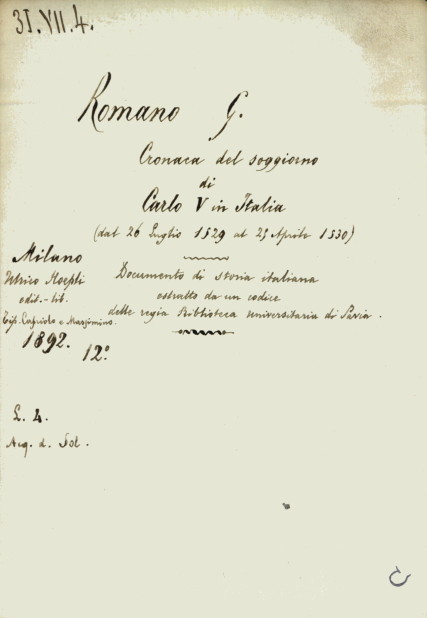 31.VII.4.
Romano G.
Cronaca del soggiorno
di
Carlo V in Italia
(dal 26 Luglio 1529 al 25 Aprile 1530)
Milano
Ulrico Hoepli
edit.-lib.
Tip. Capriolo e Massimino.
1892.
12°
Documento di storia italiana
estratto da un codice
della regia Biblioteca universitaria di Pavia.
L. 4.
Acq. d. Sol.